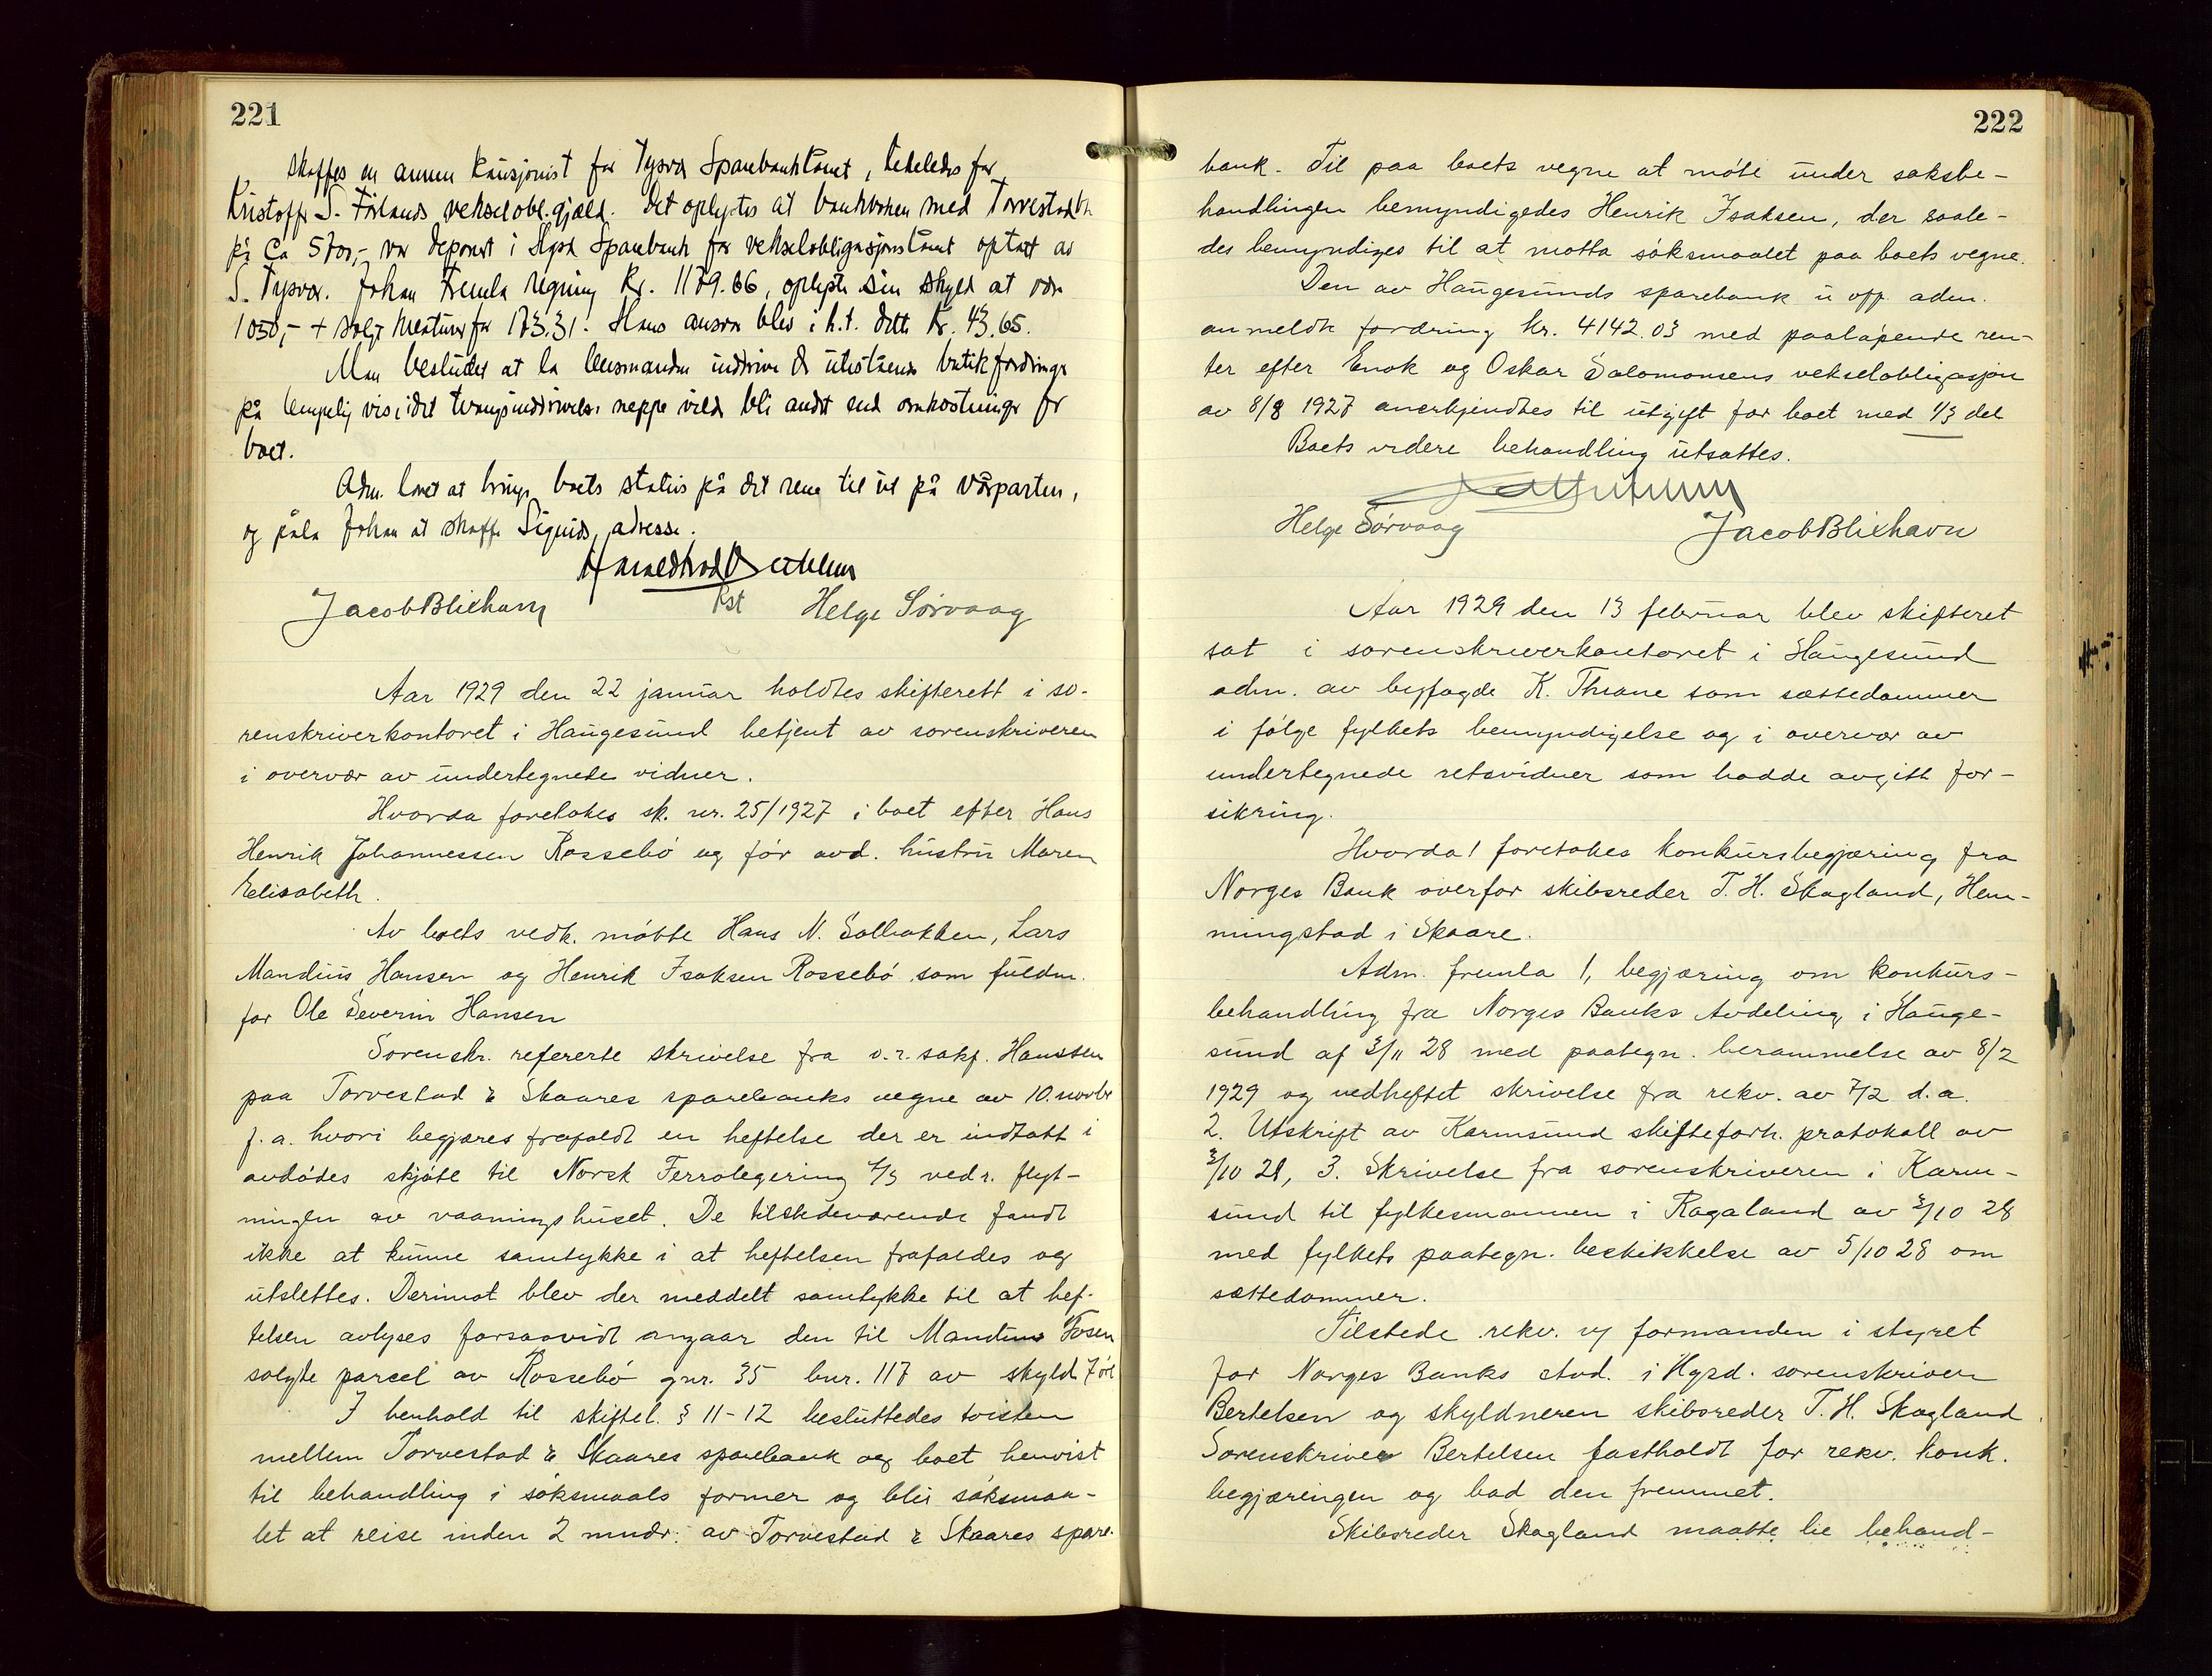 221
skaffes en annen kausjonist for Tysvær Sparebanklånet, likeledes for
Kristoffer S. Førlands vekselobl.gjæld. Det oplystes at bankboken med Torvestad
på Ca 5700,- var deponert i Hgsd Sparebank for vekselobligasjonslånet optatt av
S. Tysvær. Johan fremla regning Kr. 1179.66, oplyste sin skyld at være
1050,- + solgt kreaturer for 173.31. Hans ansvar blev i h.t. dette Kr. 43.65.
Man besluttet at la lensmanden inddrive de utestående butikfordringer
på lempelig vis, idet tvangsinddrivelse neppe vilde bli andet end omkostninger for
boet.
Adm. lovet at bringe boets status på det rene til ut på vårparten,
og påla Johan at skaffe Sigurds adresse.
Harald Bertelsen
Jacob Blikhavn kst Helge Sørvaag
Aar 1929 den 22 januar holdtes skifterett i so-
renskriverkontoret i Haugesund betjent av sorenskriveren
i overvær av undertegnede vidner.
Hvorda foretokes sk. nr. 25/1927 i boet efter Hans
Henrik Johannessen Rossebø og før avd. hustru Maren
Elisabeth.
Av boets vedk. møtte Hans N. Solbakken, Lars
Mandius Hansen og Henrik Isaksen Rossebø som fuldm.
for Ole Severin Hansen
Sorenskr. refererte skrivelse fra o.r.sakf. Hanssen
paa Torvestad & Skaares sparebanks vegne av 10. novbr
f.a. hvori begjæres frafaldt en heftelse der er indtatt i
avdødes skjøte til Norsk Ferrolegering A/S vedr. flyt-
ningen av vaaningshuset. De tilstedeværende fandt
ikke at kunne samtykke i at heftelsen frafaldes og
utslettes. Derimot blev der meddelt samtykke til at hef-
telsen avlyses forsaavidt angaar den til Mandius Tosen
solgte parcel av Rossebø gnr. 35 bnr. 117 av skyld 7 øre
I henhold til skiftel. § 11-12 besluttedes tvisten
mellem Torvestad & Skaares sparebank og boet henvist
til behandling i søksmaals former og blir søksmaa-
let at reise inden 2 mndr. av Torvestad & Skaares spare-
222
bank. Til paa boets vegne at møte under saksbe-
handlingen bemyndigedes Henrik Isaksen, der saale-
des bemyndiges til at motta søksmaalet paa boets vegne.
Den av Haugesunds sparebank u off. adm.
anmeldte fordring kr. 4142.03 med paaløpende ren-
ter efter Enok og Oskar Salomonsens vekselobligasjon
av 8/8 1927 anerkjendtes til utgift for boet med 1/3 del
Boets videre behandling utsattes.
Helge Sørvaag Jacob Blikhavn
Aar 1929 den 13 februar blev skifteret
sat i sorenskriverkontoret i Haugesund
adm. av byfogde K. Thrane som sættedommer
i følge fylkets bemyndigelse og i overvær av
undertegnede retsvidner som hadde avgitt for-
sikring.
Hvorda! foretokes konkursbegjæring fra
Norges Bank overfor skibsreder T. H. Skogland, Hem-
mingstad i Skaare.
Adm. fremla 1, begjæring om konkurs-
behandling fra Norges Banks Avdeling i Hauge-
sund af 3/11 28 med paategn. berammelse av 8/2
1929 og vedheftet skrivelse fra rekv. av 7/2 d.a.
2. Utskrift av Karmsund skifteforh. protokoll av
3/10 28, 3. Skrivelse fra sorenskriveren i Karm-
sund til fylkesmannen i Rogaland av 3/10 28
med fylkets paategn. beskikkelse av 5/10 28 om
sættedommer.
Tilstede rekv. v/ formanden i styret
for Norges Banks Avd. i Hgsd. sorenskriver
Bertelsen og skyldneren skibsreder T. H. Skogland.
Sorenskriver Bertelsen fastholdt for rekv. konk.
begjæringen og bad den fremmet.
Skibsreder Skogland maatte be behand-